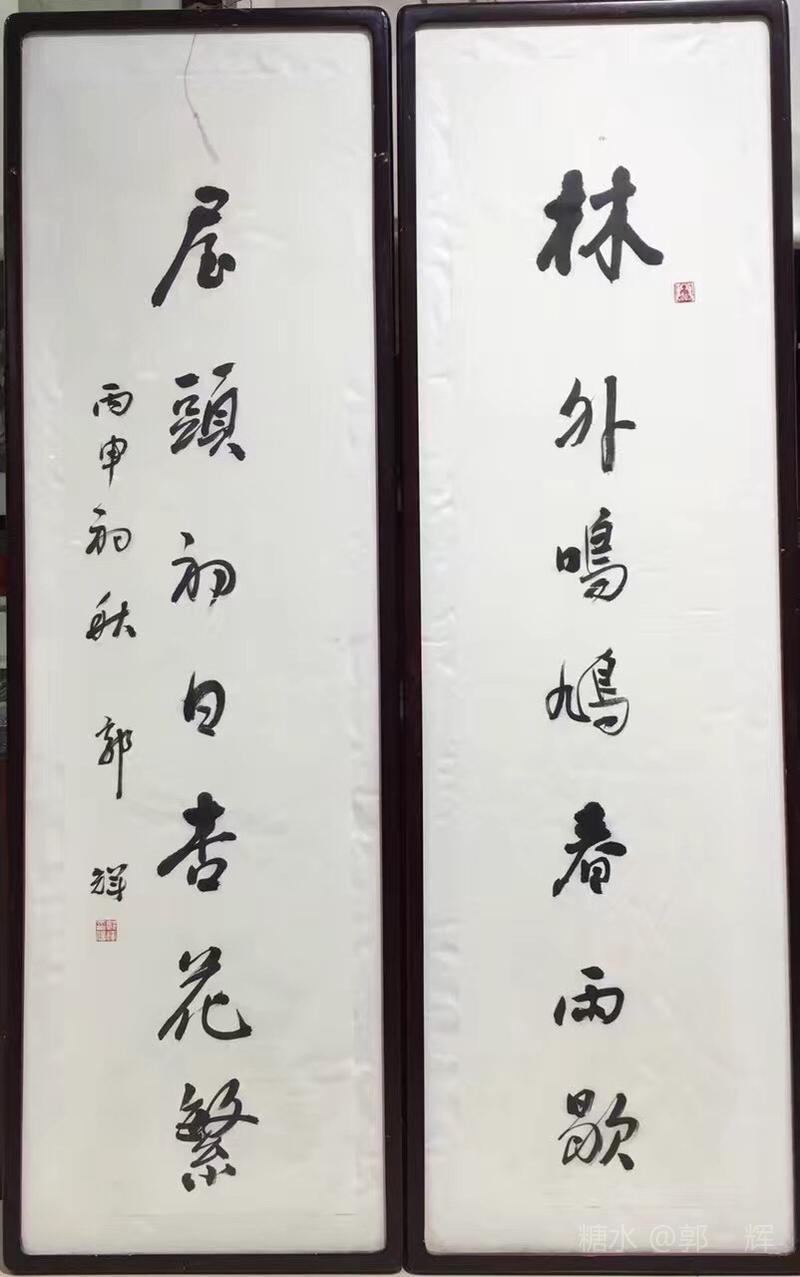 林外鳴鳩春雨歇
屋頭初日杏花繁
丙申初秋 郭輝
糖水 @郭 辉